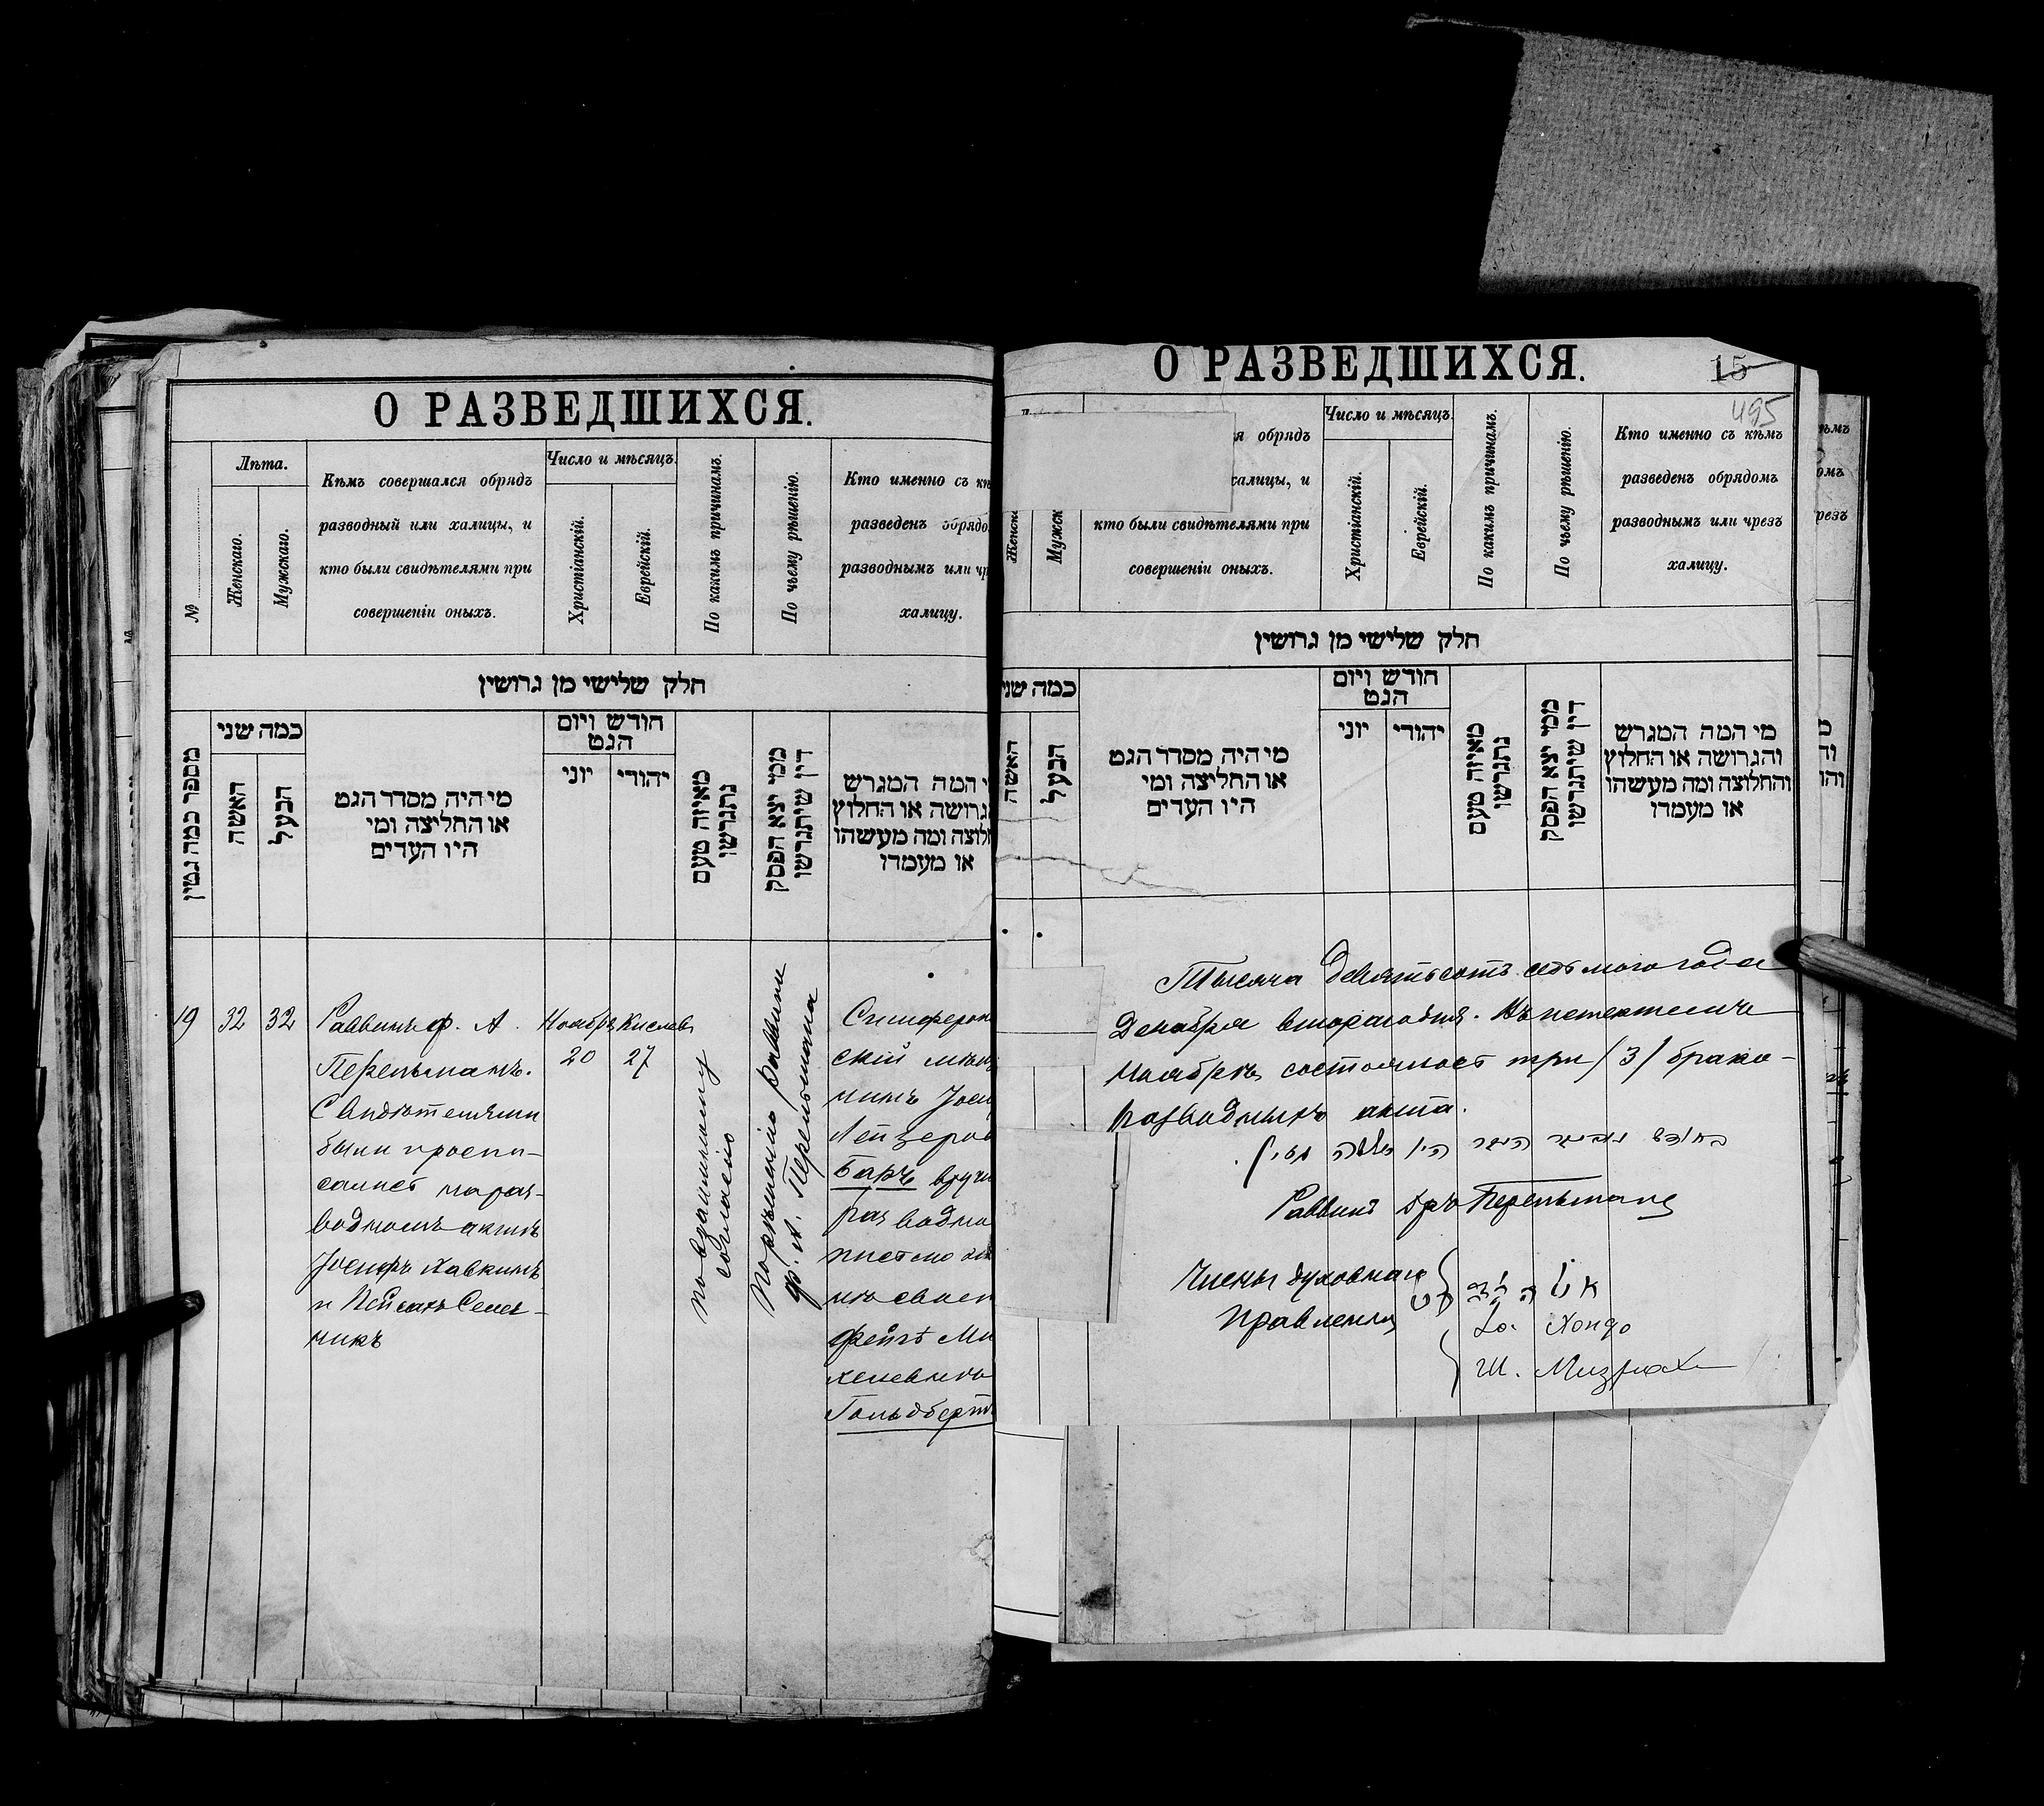 О РАЗВЕДШИХСЯ.
№
Лѣта.
Женскаго.
Мужскаго.
Кѣмъ совершался обрядъ
разводный или халицы, и
кто были свидѣтелями при
совершеніи оныхъ.
Число и мѣсяцъ.
Христіанскій.
Еврейскій.
По какимъ причинамъ.
По чьему рѣшенію.
Кто именно съ
разведенъ обрядо
разводнымъ или чр
халицу.
חלק שלישי מן גרושין
מספר כמה גטין
כמה שני
האשה
הבעל
מי היה מסדר הגט
או החליצה ומי
היו העדים
חודש ויום
הגט
יוני
יהודי
מאיזה טעם
נתגרשו
ממי יצא הפסק
דין שיתגרשו
י המה המגרש
גרושה או החלוץ
לוצה ומה מעשהו
או מעמדו
19
32
32
Раввинъ ф. А.
Перельманъ.
Свидѣтелями
были
водномъ актѣ
Іосифъ Хавкинъ
и Пейсахъ
чикъ
Ноябрь
20
Кислевъ
27
по взаимному
согласію
По рѣшенію Раввина
ф. А. Перельмана
Симфероп
скій мѣщ
нинъ Іоси
Лейзеров
Баръ вручи
разводно
письмо
своей
Фейгѣ Ми
хелевнѣ
Гольдберг
О РАЗВЕДШИХСЯ.
15
495
Женск
Мужск
я обрядъ
халицы, и
кто были свидѣтелями при
совершеніи оныхъ.
Число и мѣсяцъ.
Христіанскій.
Еврейскій.
По какимъ причинамъ.
По чьему рѣшенію.
Кто именно съ кѣмъ
разведенъ обрядомъ
разводнымъ или чрезъ
халицу.
חלק שלישי מן גרושין
כמה שני
האשה
הבעל
מי היה מסדר הגט
או החליצה ומי
היו העדים
חודש ויום
הגט
יוני
יהודי
מאיזה טעם
נתגרשו
ממי יצא הפסק
דין שיתגרשו
מי המה המגרש
והגרושה או החלוץ
והחלוצה ומה מעשהו
או מעמדו
Тысяча девятьсотъ седьмого года
Декабря второго дня. Въ истекшемъ
Ноябрѣ состоялось три /3/ брако-
разводныхъ акта.
בחודש נאיאבר העבר היו שלשה גטין.
Раввинъ Ф. А. Перельманъ
Члены духовнаго
Правленія
Хондо
Ш. Мизрахи